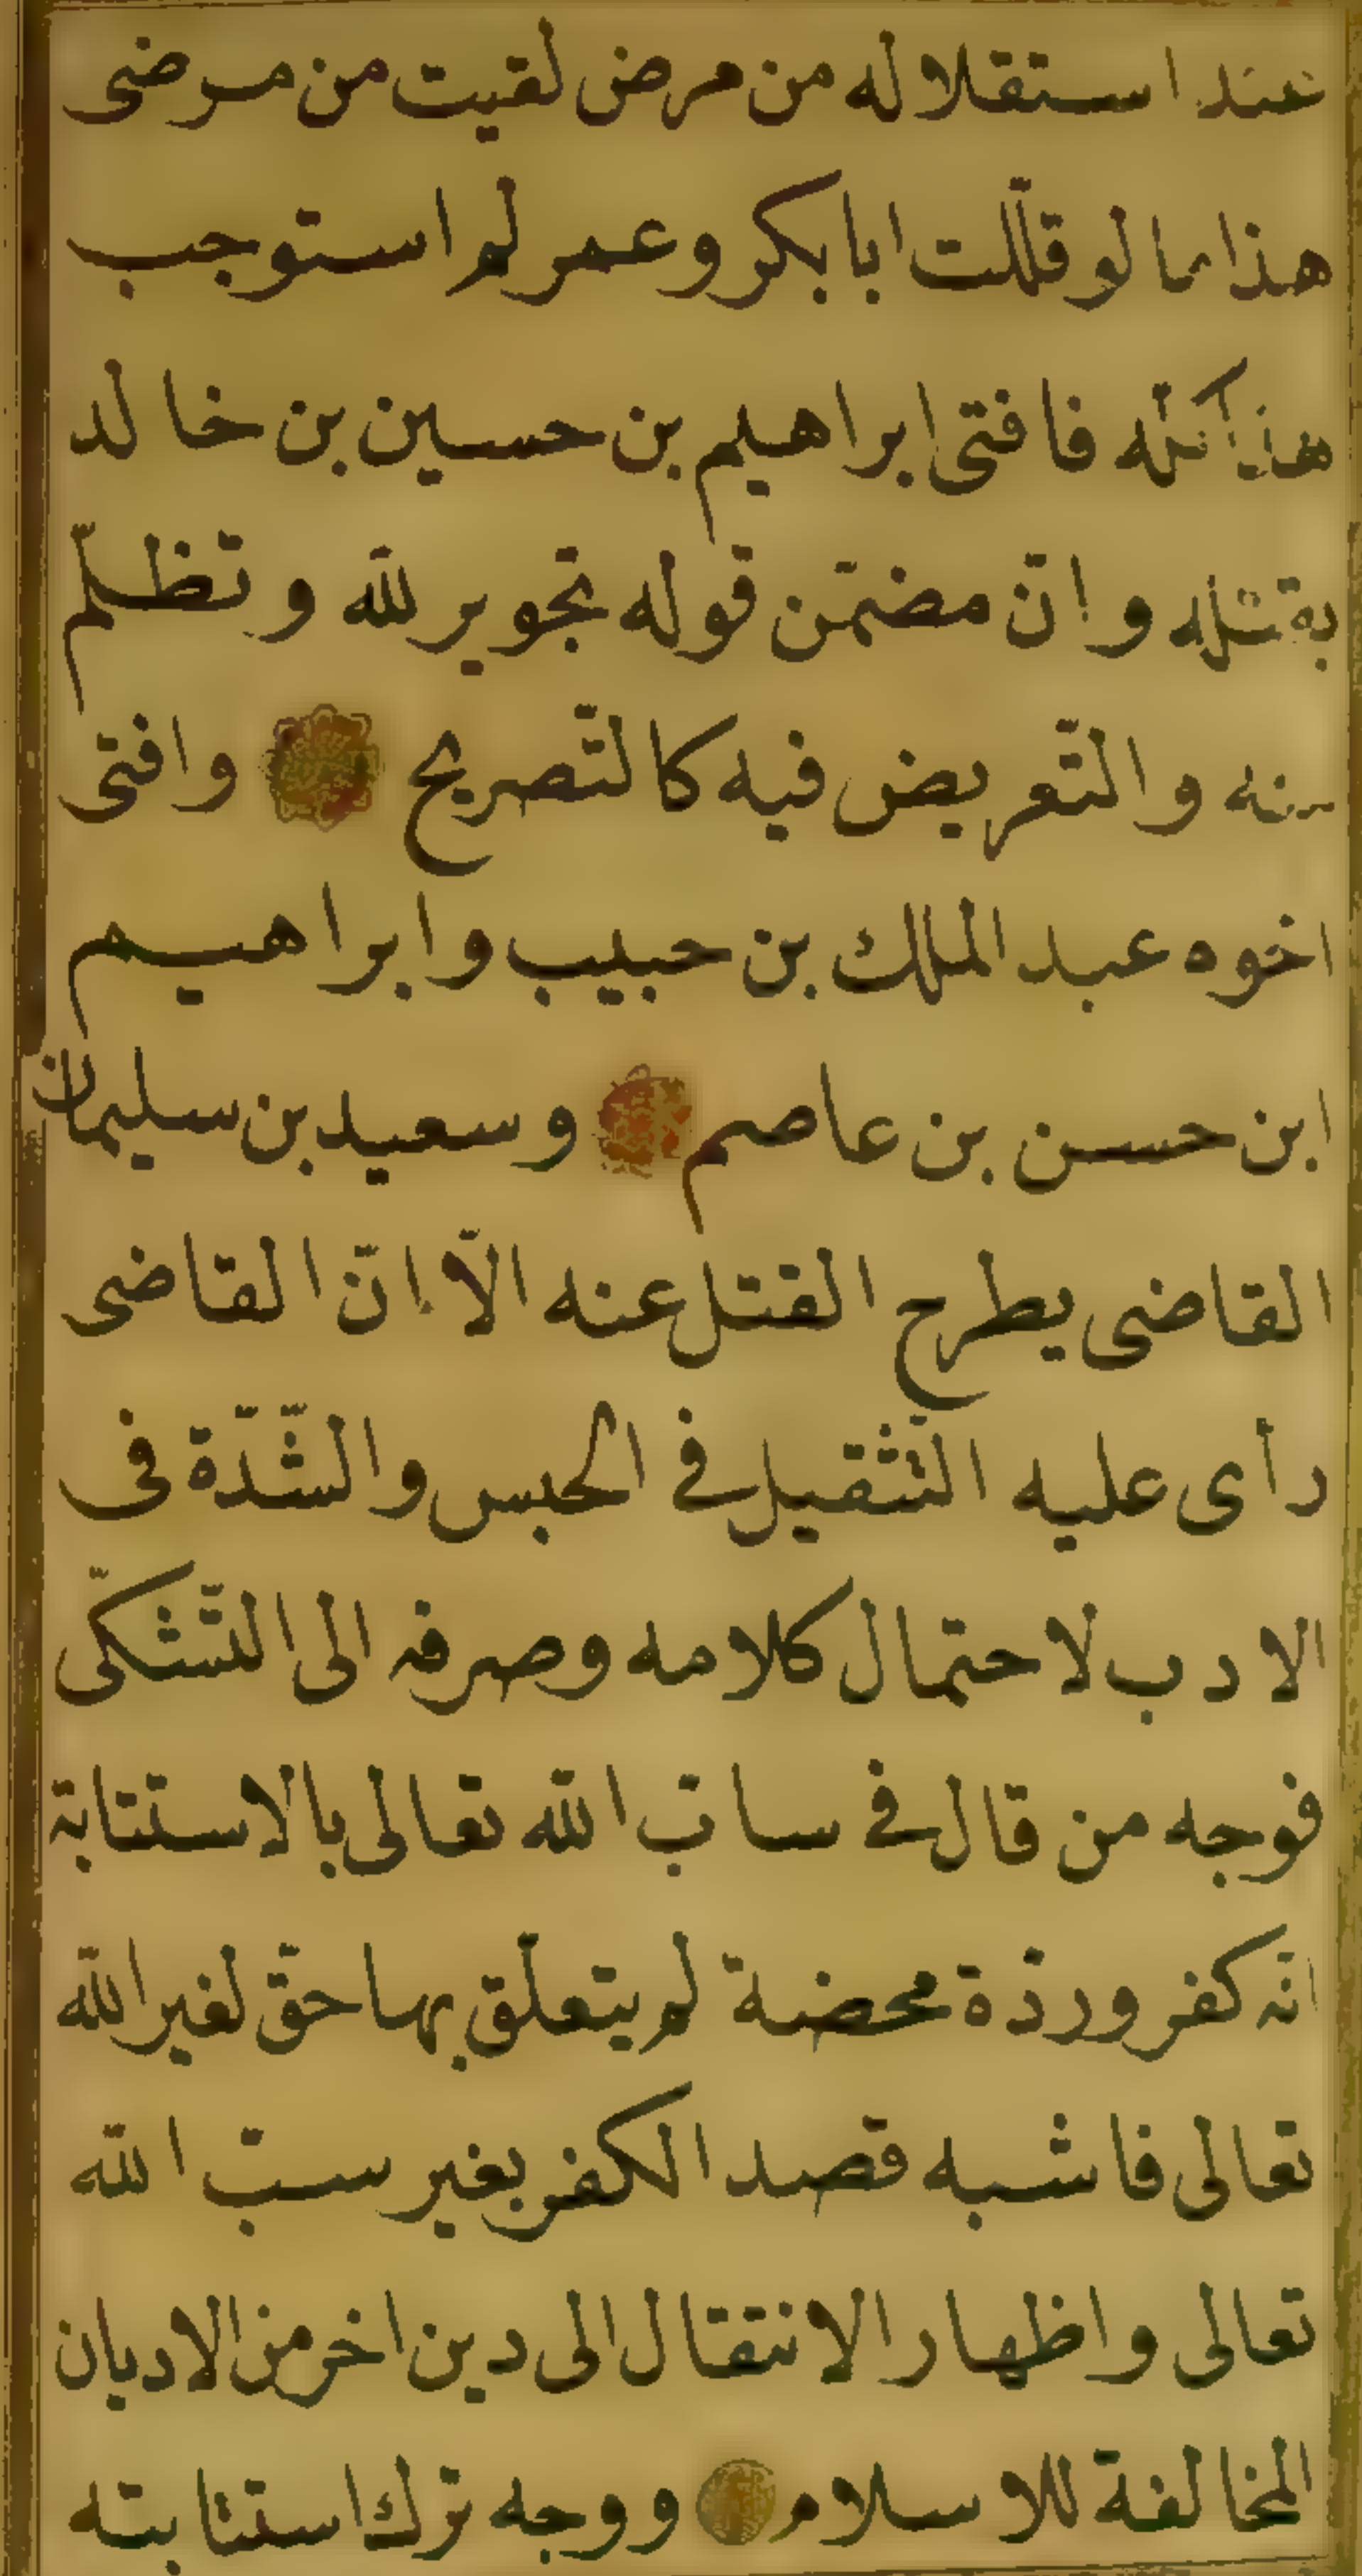 عند استقلاله من مرض لقيت من مرضى
هذا ما لو قتلت ابا بكر وعمر لم استوجب
هذا كله فافتى ابراهيم بن حسين بن خالد
بقتله وانّ مضمّن قوله تجوير لله وتظلّم
منه والتّعريض فيه كالتّصريح وافتى
اخوه عبد الملك بن حبيب وابراهيم
ابن حسن بن عاصم وسعيد بن سليمان
القاضى يطرح القتل عنه الاّ انّ القاضى
رأى عليه التّثقيل فى الحبس والشّدّة فى
الادب لاحتمال كلامه وصرفه الى التّشكّى
فوجه من قال فى سابّ الله تعالى بالاستتابة
انّه كفر وردّة محضة لم يتعلّق بها حقّ لغير الله
تعالى فاشبه قصد الكفر بغير سبّ الله
تعالى واظهار الانتقال الى دين اخر من الاديان
المخالفة للاسلام ووجه ترك استتابته